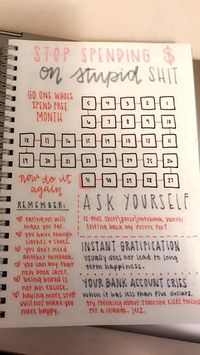 STOP SPENDING $
on stupid SHIT
GO ONE WHOLE
SPEND FREE
MONTH
5 4 3 2 1
6 7 8 9 10
18 17 16 15 14 13 12 11
19 20 21 22 23 24 25 26
31 30 29 28 27
now do it
again
REMEMBER:
eating out will
make you fat.
you have enough
clothes & shoes.
you don't need
another notebook.
you can buy that
new book later.
being bored is
not an excuse.
having more stuff
will not make you
more happy.
ASK YOURSELF
is this shirt/purse/notebook worth
setting back my future for?
INSTANT GRATIFICATION
usually does not lead to long
term happiness.
YOUR BANK ACCOUNT CRIES
when it has less than five dollars.
try thinking about someone else's feelings
for a change, jeez.